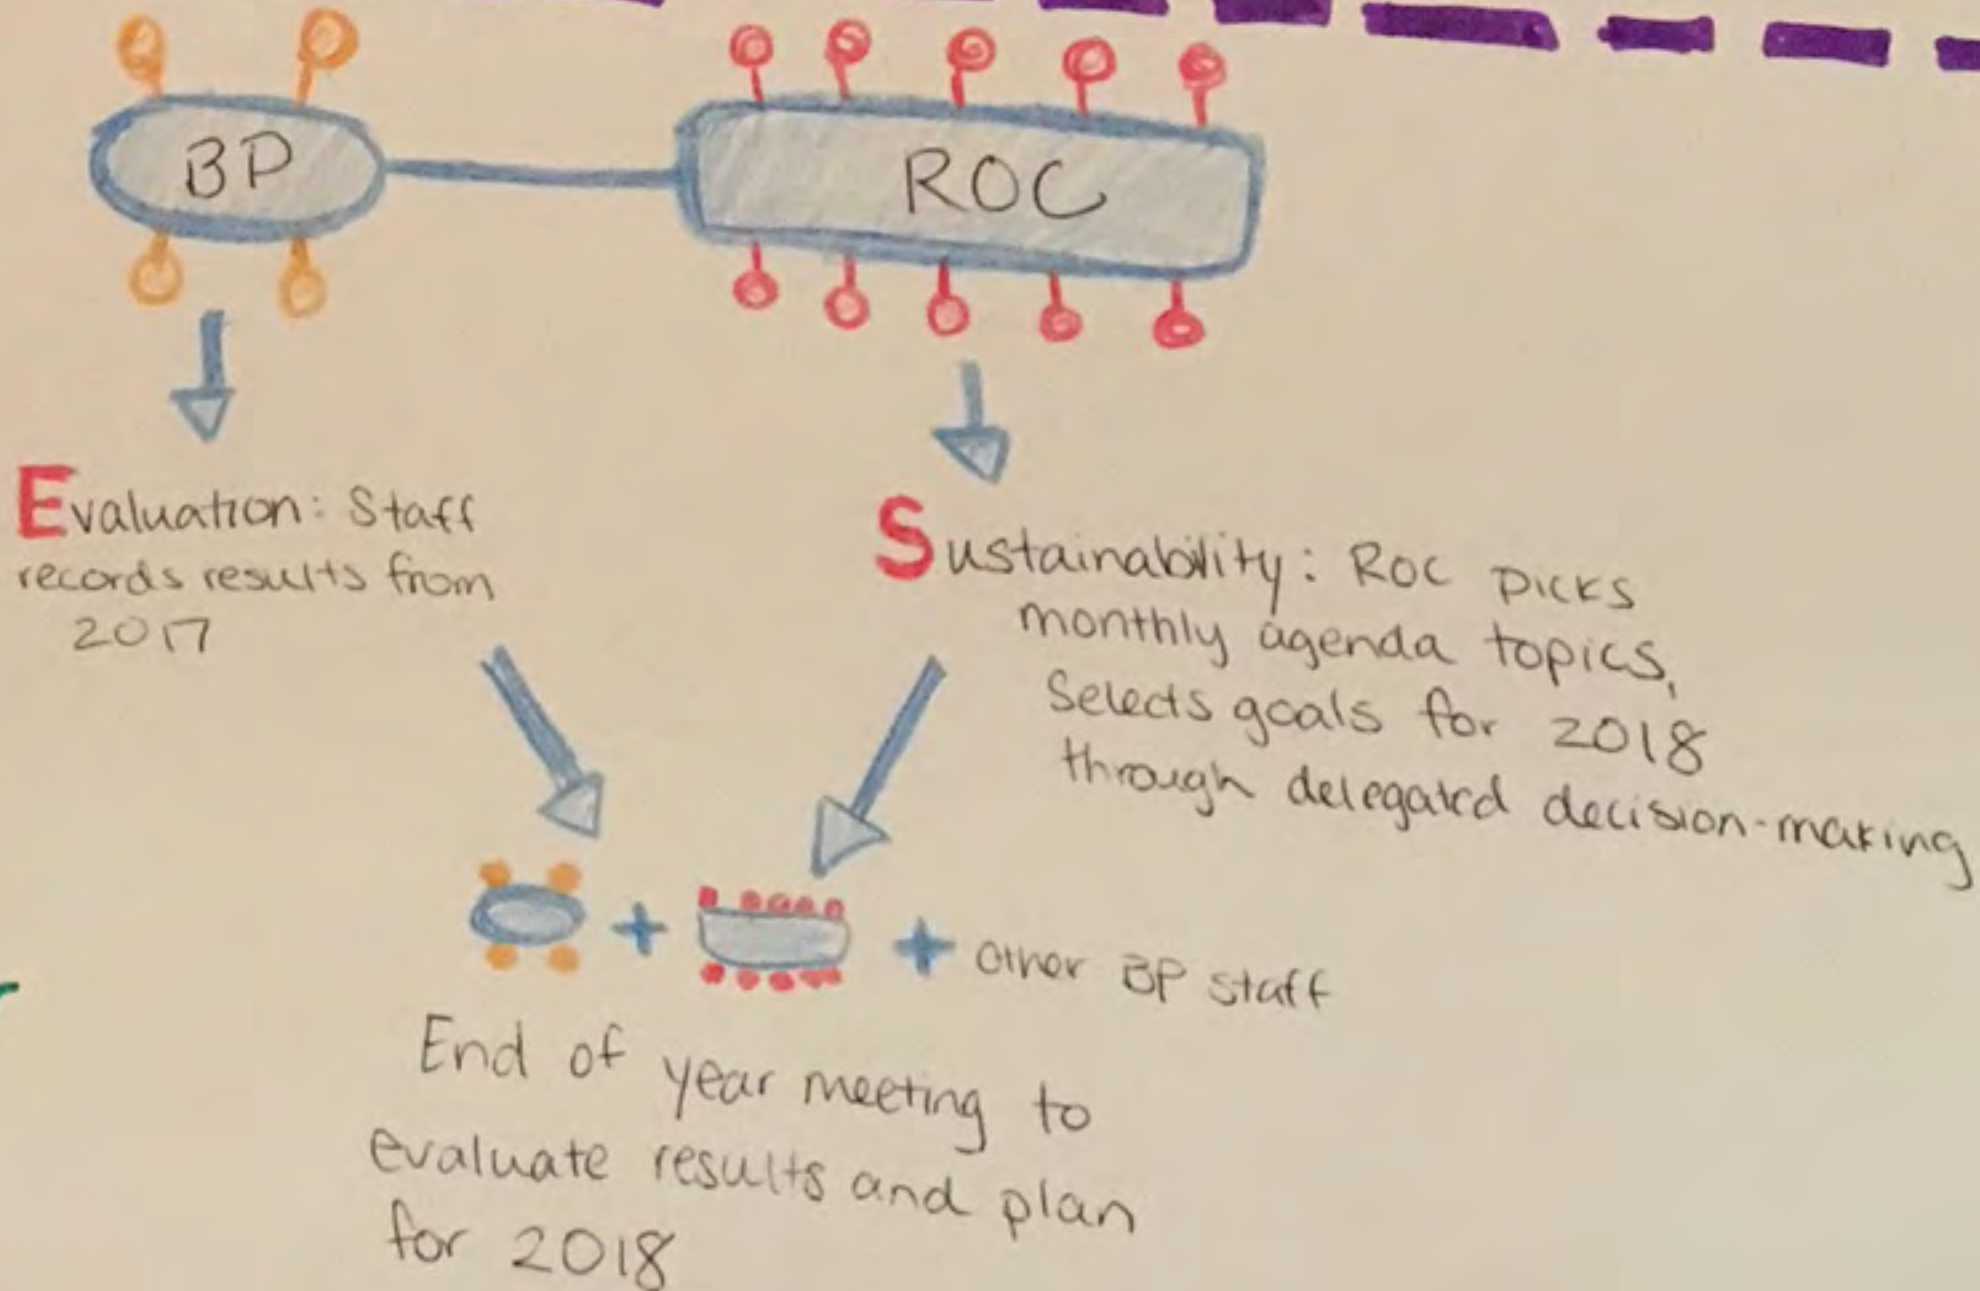 BP
ROC
Evaluation: Staff
records results from
2017
Sustainability: ROC picks
monthly agenda topics,
Selects goals for 2018
through delegated decision-making
+ + other BP staff
End of year meeting to
evaluate results and plan
for 2018